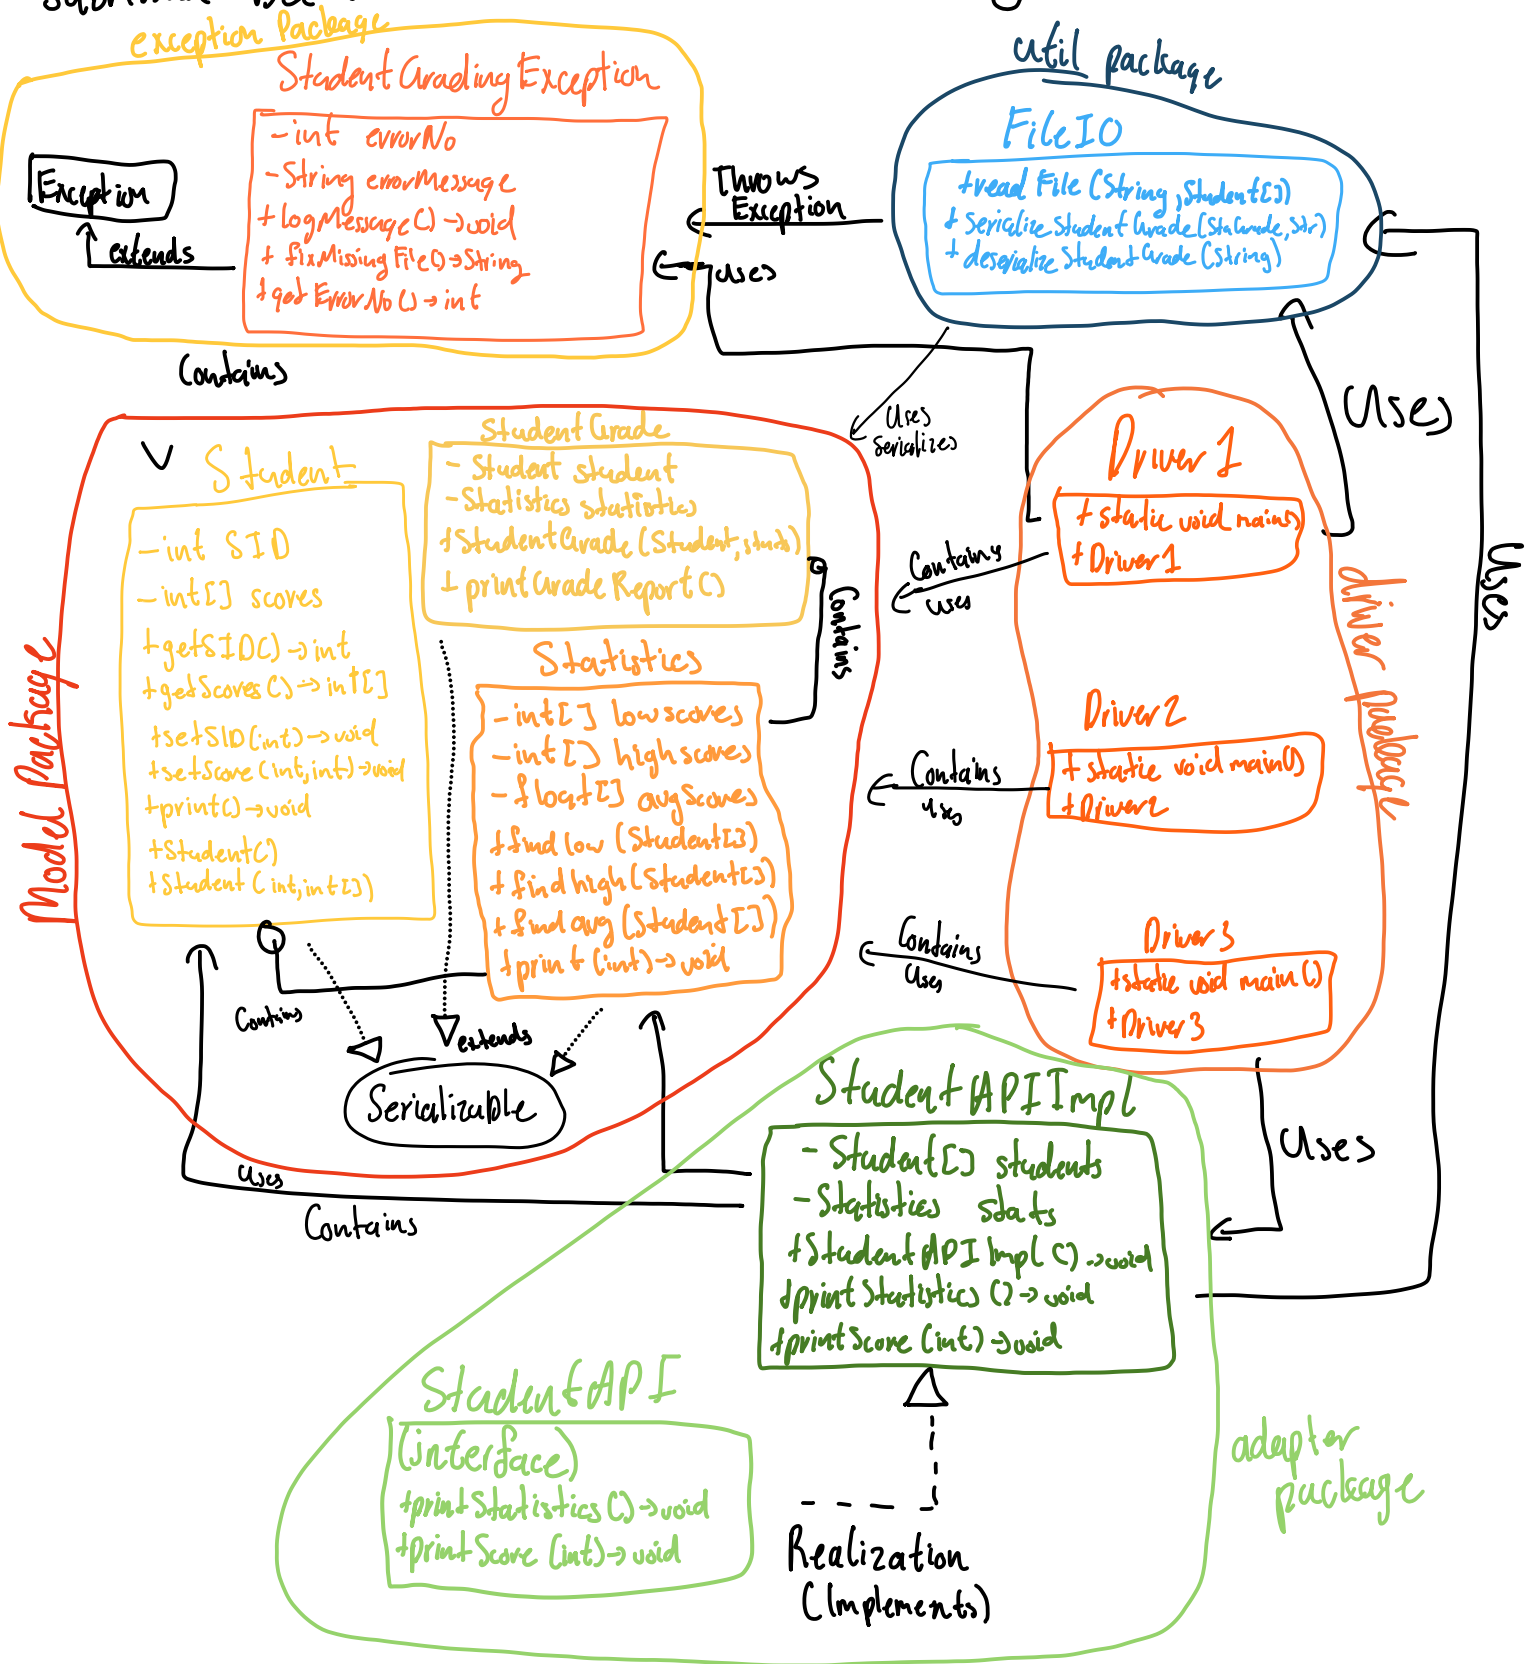 exception Package
StudentGradingException
- int errorNo
- String errorMessage
+ logMessage() → void
+ fixMissingFile() → String
+ getErrorNo() → int
Exception
extends
Contains
Throws
Exception
uses
util package
FileIO
+readFile(String, Student[])
+ SerializeStudentGrade(StuGrade, Str)
+ deserializeStudentGrade(String)
Uses
Serializes
Uses
Uses
Model Package
Student
- int SID
- int[] scores
+getSID() → int
+getScores() → int[]
+setSID(int) → void
+setScore(int, int) → void
+print() → void
+Student()
+Student(int, int[])
StudentGrade
- Student student
- Statistics statistics
+StudentGrade(Student, stats)
+ printGradeReport()
Contains
Statistics
- int[] lowscores
- int[] highscores
- float[] avgScores
+findlow(Student[])
+ findhigh(Student[])
+ findavg(Student[])
+print(int) → void
Contains
extends
Serializable
driver package
Driver1
+ static void main()
+ Driver1
Contains
uses
Driver2
+ static void main()
+ Driver2
Contains
uses
Driver3
+static void main()
+ Driver3
Contains
Uses
Uses
uses
Contains
adapter
package
StudentAPIImpl
- Student[] students
- Statistics stats
+StudentAPIImpl() → void
+printStatistics() → void
+printScore(int) → void
StudentAPI
(interface)
+printStatistics() → void
+printScore(int) → void
Realization
(Implements)